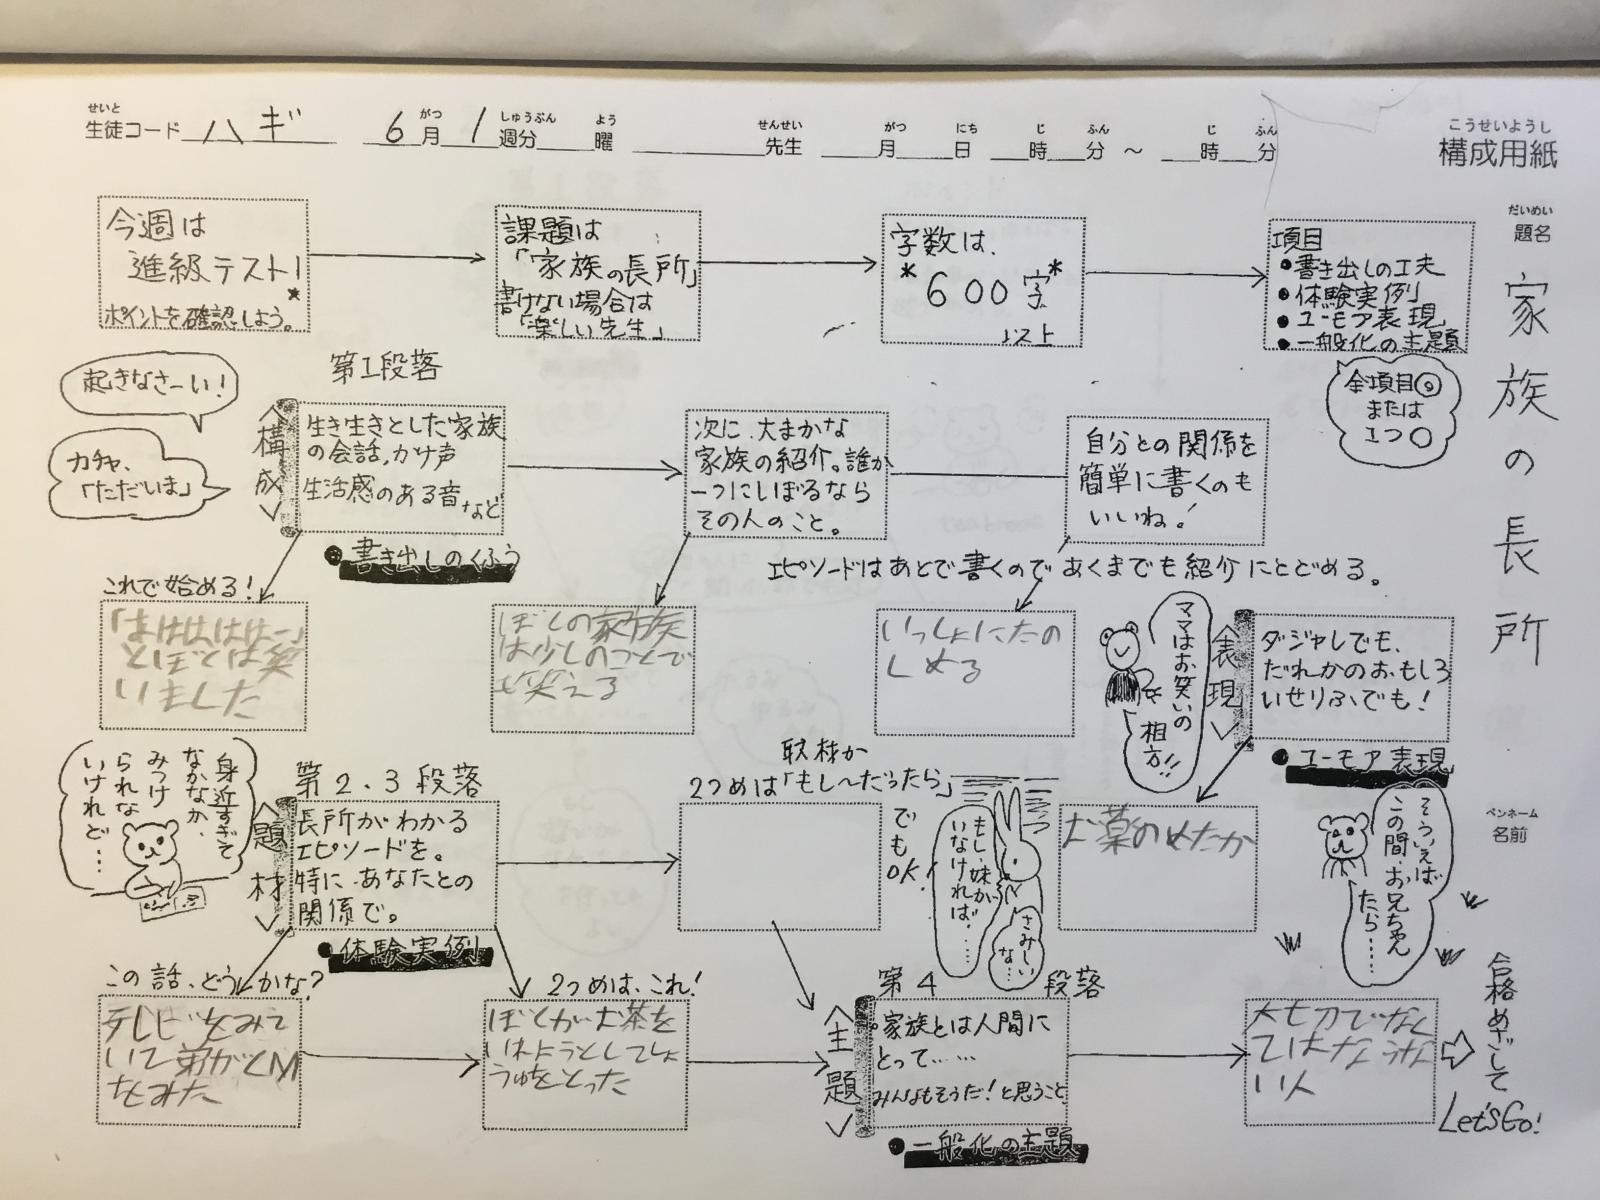 せいと
生徒コード ハギ 6月 1週分 曜 先生 月 日 時 分 ～ 時 分
がつ しゅうぶん よう せんせい がつ にち じ ふん じ ふん
こうせいようし
構成用紙
だいめい
題名
家族の長所
ペンネーム
名前
今週は
進級テスト!
ポイントを確認しよう。
課題は
「家族の長所」
書けない場合は
「楽しい先生」
字数は、
*600字*
以上
項目
●書き出しの工夫
●体験実例
●ユーモア表現
●一般化の主題
全項目◎
または
1つ○
起きなさーい!
カチャ、
「ただいま」
第1段落
〈構成〉
生き生きとした家族
の会話、かけ声
生活感のある音など
●書き出しのくふう
次に、大まかな
家族の紹介。誰か
一つにしぼるなら
その人のこと。
自分との関係を
簡単に書くのも
いいね!
エピソードはあとで書くのであくまでも紹介にとどめる。
これで始める!
ぼくの家族
は少しのことで
笑える
いっしょにたの
しめる
ママはお笑いの
相方!!
〈表現〉
ダジャレでも、
だれかのおもしろ
いせりふでも!
●ユーモア表現
お薬のめたか
身近すぎて
なかなか、
みつけ
られな
いけれど…
第2.3段落
〈題材〉
長所がわかる
エピソードを。
特に、あなたとの
関係で。
●体験実例
取材か
2つめは「もし〜だったら」
でもOK!
もし、妹が、
いなければ…
さみしい
な…
そういえば
この間、お兄ちゃん
たら……
この話、どうかな?
2つめは、これ!
ぼくがお茶を
いれようとしてしょ
うゆをとった
〈主題〉
第4段落
・家族とは人間に
とって……
みんなもそうだ!と思うこと
●一般化の主題
合格めざして
Let's Go!